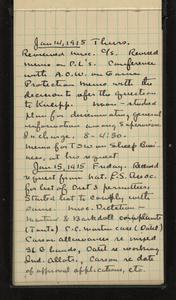 Jan 14, 1915 Thurs.
Reviewed misc. C/s. Revised
memo on P.L's. Conference
with A.O.W. on Game
Protection memo with the
decision to refer the question
to Kneipp. Noon - studied
plan for disseminating general
information among Supervisors
In charge. 8 - 4:30.
memo for T.S.W on Sheep Busi-
ness, at his request.
Jan 15, 1915 Friday. Recd
request from Nat. P.S. Assoc.
for list of Dist 3 permittees.
Started list to comply with
same. misc. Dictation -
Martin & Barkdoll complaints
(Tonto) C.C. Martin case (Datil)
Carson allowances re unused
3% O lands, Datil re working
Ind. Allots., Carson re date
of approval applications, etc.